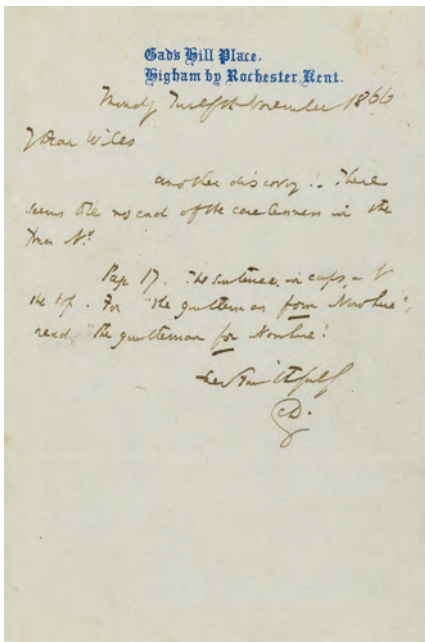 Gad's Hill Place.
Higham by Rochester, Kent.
Monday Twelfth November 1866
My Dear Wills
another discovery! There
seems to be no end of the carelessness in the
Xmas No.
Page 17. The sentence in caps, at
the top. For "the gentleman from Nowhere",
read "the gentleman for Nowhere."
Ever Faithfully
CD.